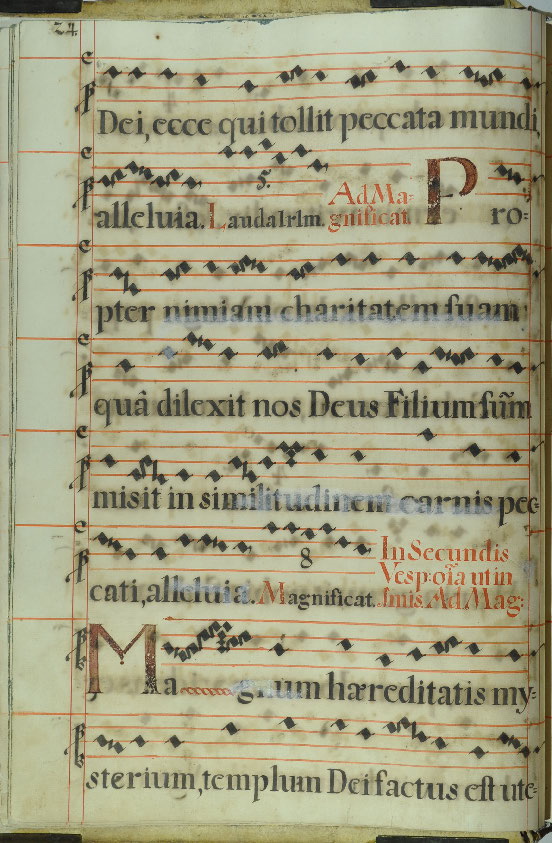 24
Dei, ecce qui tollit peccata mundi,
5.
alleluia. Lauda Irlm. Ad Ma-
gnificat P ro-
pter nimiam charitatem suam
quâ dilexit nos Deus Filium sũm
misit in similitudinem carnis pec-
8
cati, alleluia. Magnificat. In Secundis
Vesp. oĩa ut in
Imis. Ad Mag:
Ma gnum hæreditatis my-
sterium, templum Dei factus est ute-